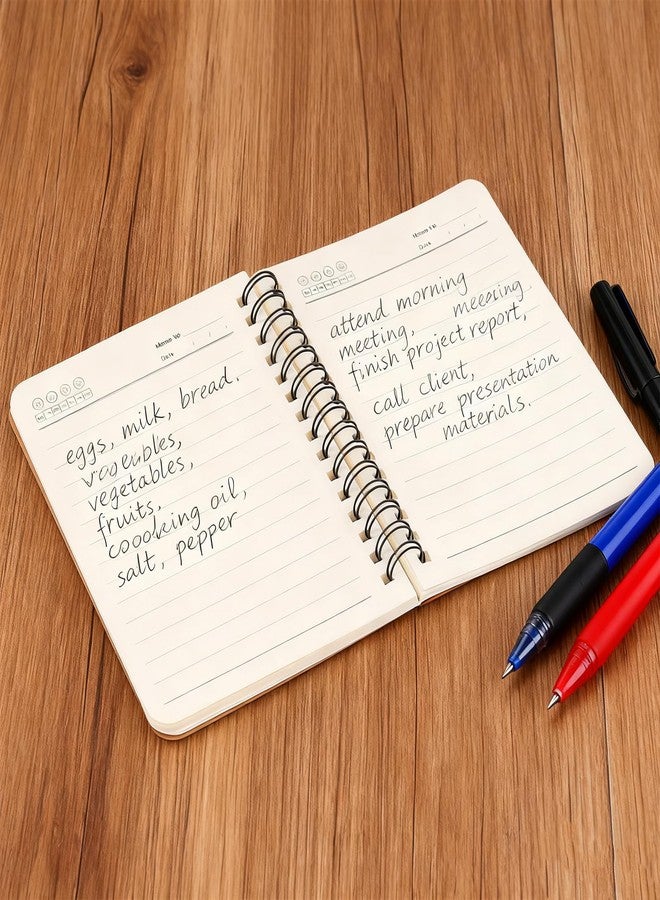 Memo No
Date
eggs, milk, bread.
vogeubles,
vegetables,
fruits,
coooking oil,
salt, pepper
Memo No
Date
attend morning
meeting, meeeing
finish project report,
call client,
prepare presentation
materials.